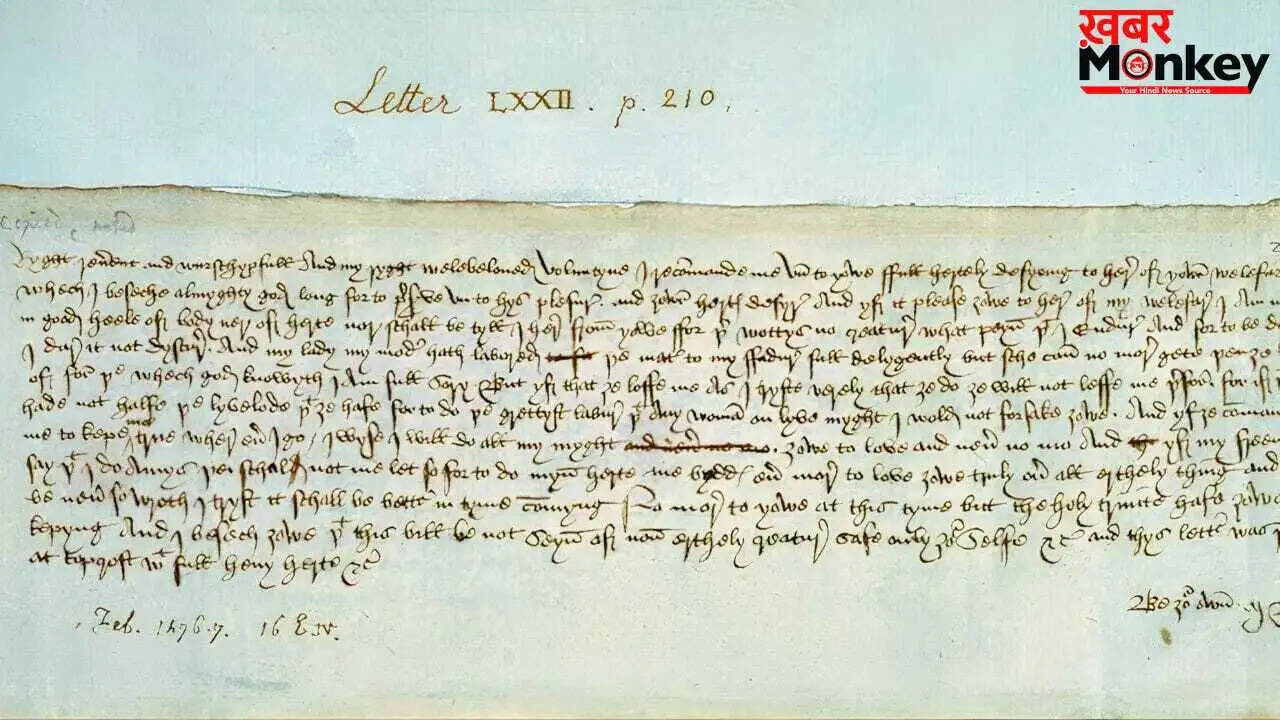 ख़बर
Monkey
Your Hindi News Source
Letter LXXII. p. 210.
Ryght reverent and wurschypfull And my ryght welebeloved Voluntyne I recomande me vn to yowe ffull hertely desyring to here of yowr welefare
whech I beseche almyghty god long for to preserve vn to hys plesur. and yowr hertes desyre And yf it please yowe to here of my welefar I Am n
in good heele of body ner of herte nor schall be tyll I her from yowe ffor þer wottys no creatur what peyn þt I Endur And for to be de
I dur it not dyscur. And my lady my moder hath labored þe mater to my ffadur full delygently but sche can no mor gete þen ze
of for þe whech god knowyth I Am full sory But yf that ze loffe me As I tryste verely that ze do ze will not leffe me þerfor. for if
hade not halfe þe lyvelode þt ze hafe for to do þe grettyst labur þt Any woman on lyve myght I wold not forsake yowe. And yf ze coman
me to kepe me true wher euer I go, I wyse I will do all my myght yowe to love and neuer no mo And yf my freen
say þt I do Amys þei schall not me let so for to do myn herte me bydds euer mor to love yowe truly ouer all erthely thing And
be neuer so wroth I tryst it schall be better in tyme comyng No mor to yowe at this tyme but the holy trinite hafe yowe
kepyng And I besech yowe þt this bill be not seyn of non erthely creatur safe only yor selfe &c And thys letter was
at topcroft wt full hevy herte &c
Be yor own
Feb. 1476-7. 16 E. IV.